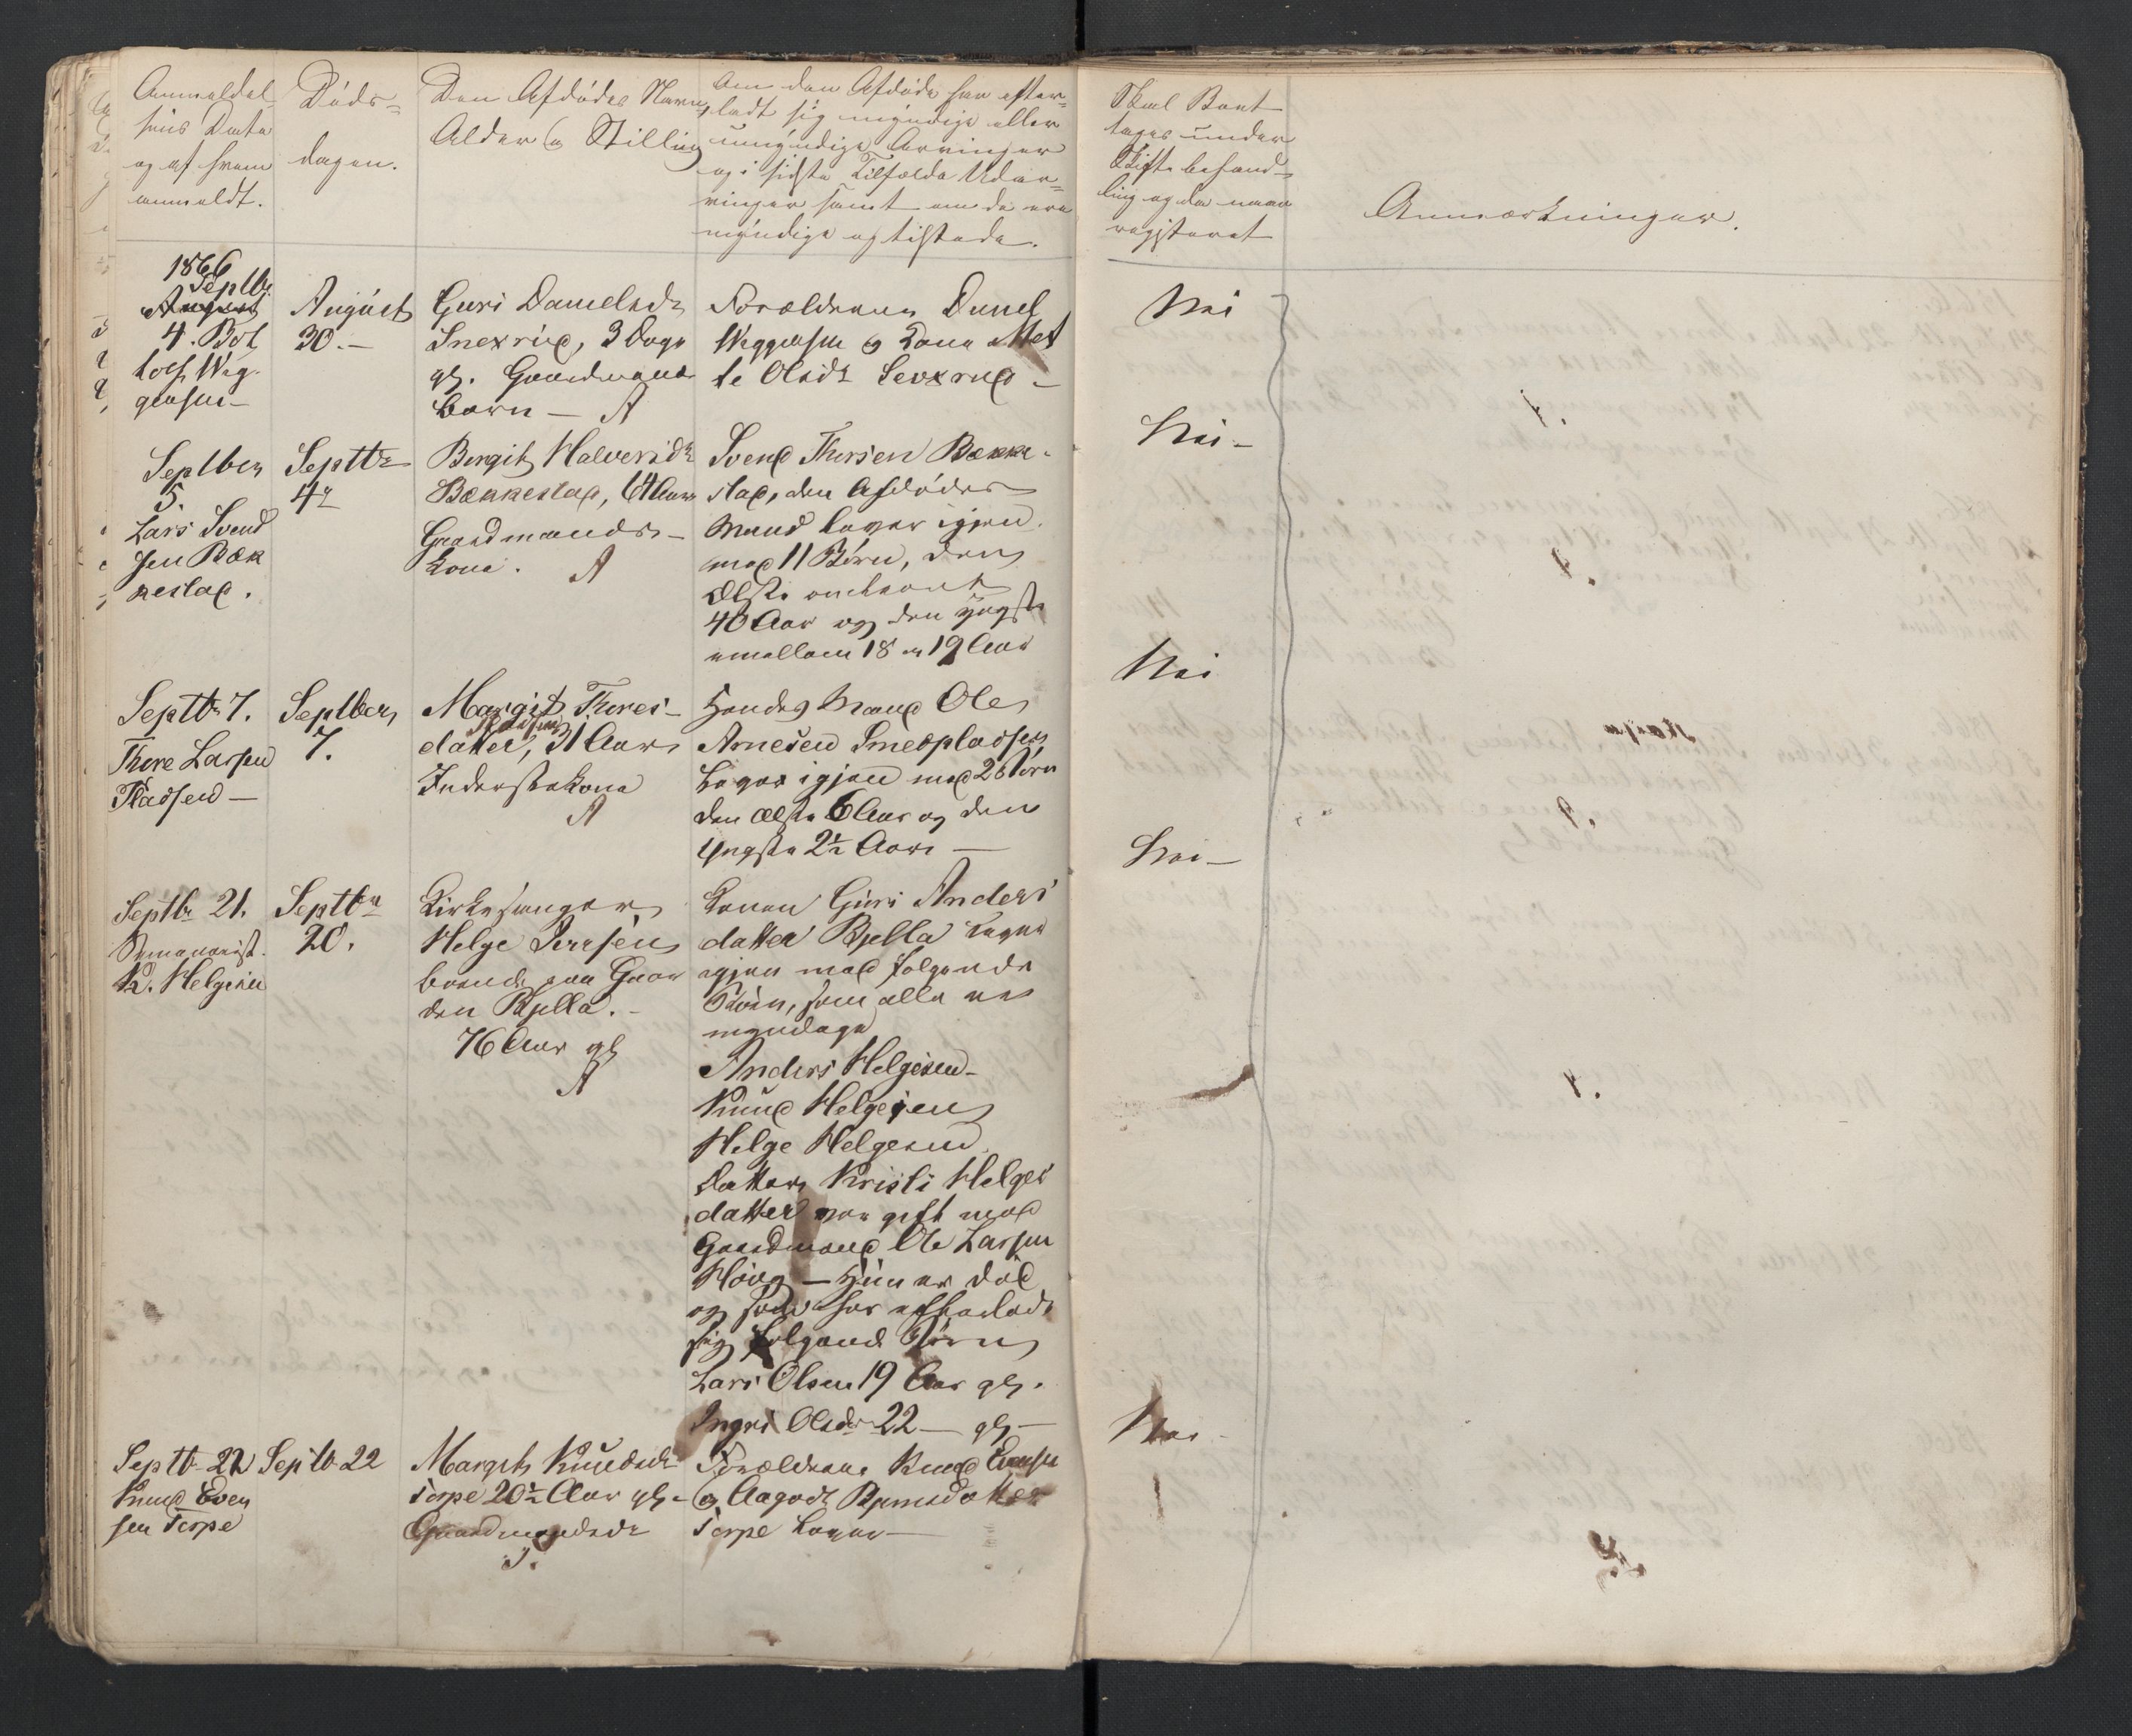 Anmeldel-
sens Dato
og af hvem
anmeldt.
Døds-
dagen.
Den Afdødes Navn,
Alder og Stilling
Om den Afdøde har efter-
ladt sig myndige eller
umyndige Arvinger
og i sidste Tilfælde Udar-
vinger samt om de ere
myndige og tilstede.
Skal Boet
tages under
Skiftebehand-
ling og da naar
registeret
Anmærkninger.
1866
Septbr
August
4. Bot
tolf Wig-
gensen
August
30.
Guri Danielsdr
3 Dage
gl. Gaardmands
barn — A
Forældrene Daniel
Wiggensen og Kone Met
te Olsdr
Nei
Septber
5.
Lars Svend
sen Bæk
kestad.
Septbr
4de
Bergit Halversdr
Bækkestad, 61 Aar
Gaardmands-
Kone. A
Svend Thorsen Bække-
stad, den Afdødes
Mand lever igjen
med 11 Børn, den
Ælste omtrent
40 Aar og den yngste
emellem 18 og 19 Aar
Nei-
Septbr 7.
Thore Larsen
Pladsen —
Septber
7.
Margit Thores-
datter, 31 Aar
Inderstekone
A
Hendes Mand Ole
Arnesen Smedpladsen
Lever igjen med 2 Børn
den ælste 6 Aar og den
Yngste 2½ Aar —
Nei
Septbr 21.
Seminarist
K. Helgesen
Septbr
20.
Kirkesanger
Helge Iversen
boende paa Gaar
den Bjella.
76 Aar gl
A
Konen Guri Anders
datter Bjella lever
igjen med følgende
Børn, som alle ere
myndige
Anders Helgesen-
Knud Helgesen
Helge Helgesen
Datter Kristi Helges
datter var gift med
Gaardmand Ole Larsen
Høieg — Hun er død
og har efterladt
sig følgende Børn
Lars Olsen 19 Aar gl.
Ingri Olsdr 22 — gl —
Nei-
Septbr 22
Knud Even
sen Torpe
Septbr 22
Margit Knudsdr
Torpe 20½ Aar gl.
Gaardmandsdr
Forældrene Knud Evensen
og Aagodt Bjørnsdatter
Torpe Lever —
Nei